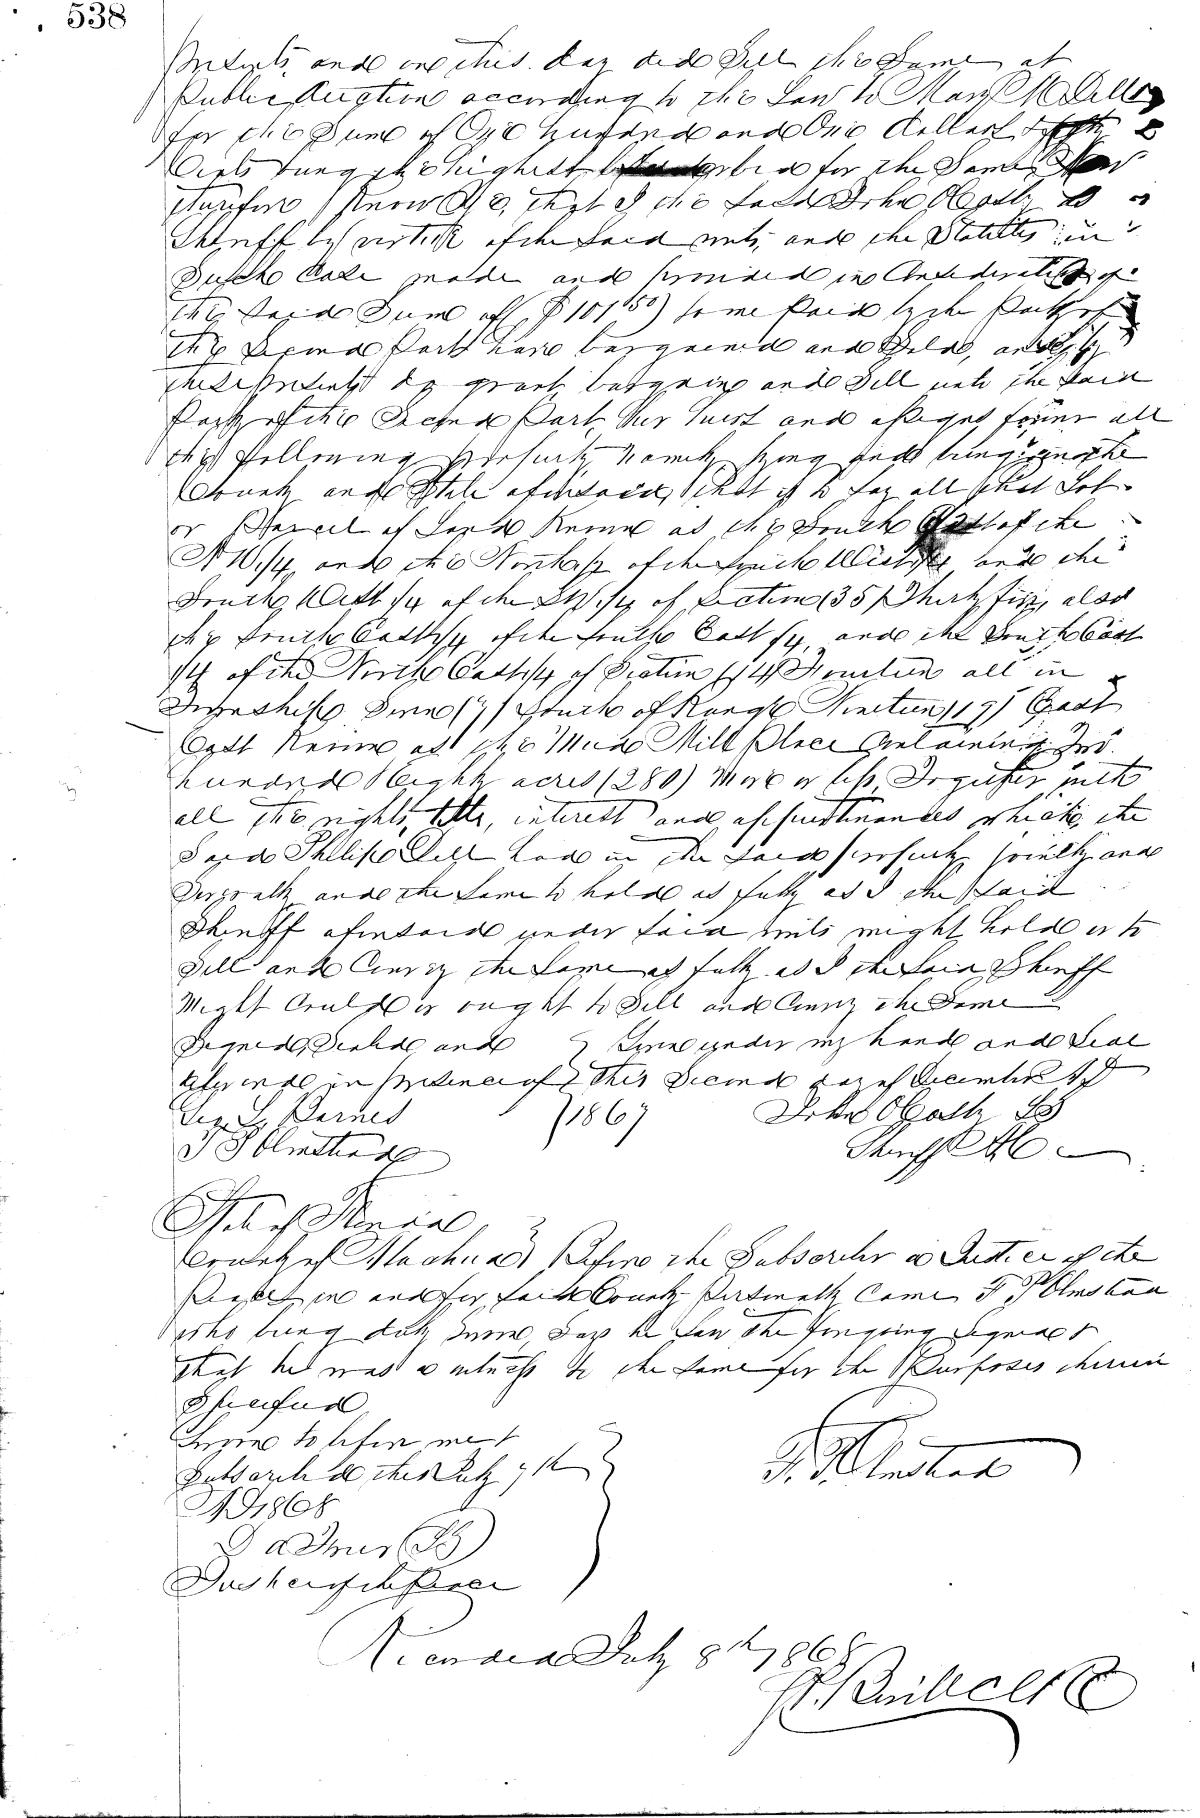 538
presents, and on this day did Sell the Same at
Public Auction according to the Law to Mary M Dell
for the Sum of One hundred and One dollars fifty
Cents being the highest bid for the Same Now
therefore Know Ye, that I the Said John C Gasly as
Sheriff by virtue of the Said writs, and the Statutes in
Such Case made and provided in Consideration of
the Said Sum of $101 50) to me Paid by the Party of
the Second Part have bargained and Sold, and by
these presents do grant, bargain and Sell unto the Said
Party of the Second Part, her heirs and assigns forever all
the following property, namely, lying and being in the
County and State aforesaid, that is to Say all that Lot
or Parcel of Land Known as the South of the
N W 1/4, and the North 1/2 of the South West 1/4, and the
South West 1/4 of the S W 1/4 of Section (35) Thirty five, also
the South East 1/4 of the South East 1/4, and the South East
1/4 of the North East 1/4 of Section (14) Fourteen all in
Township Seven (7) South of Range Nineteen (19) East
East Known as the Mud Mill Place Containing Two
hundred Eighty acres (280) More or less, Together with
all the rights, title, interest and appurtinances which the
Said Phillip Dell had in the Said property jointly and
Severally and the Same to hold as fully as I the Said
Sheriff aforesaid under Said writs might hold or to
Sell and Convey the Same as fully as I the Said Sheriff
Might Could or ought to Sell and Convey the Same
Signed, Sealed, and } Given under my hand and Seal
delivered in presence of } this Second day of December A D
L. Barnes } 1867 John C Gasly LS
F P Olmstead Sheriff A C
State of Florida }
County of Alachua } Before the Subscriber a Justice of the
Peace in and for Said County Personally Came F P Olmstead
who being duly Sworn, Says he Saw the foregoing Signed &
that he was a witness to the Same for the Purposes therein
Specified
Sworn to before me &
Subscribed this July 7th F. P. Olmstead
A D 1868
Justice of the Peace
Recorded July 8th 1868